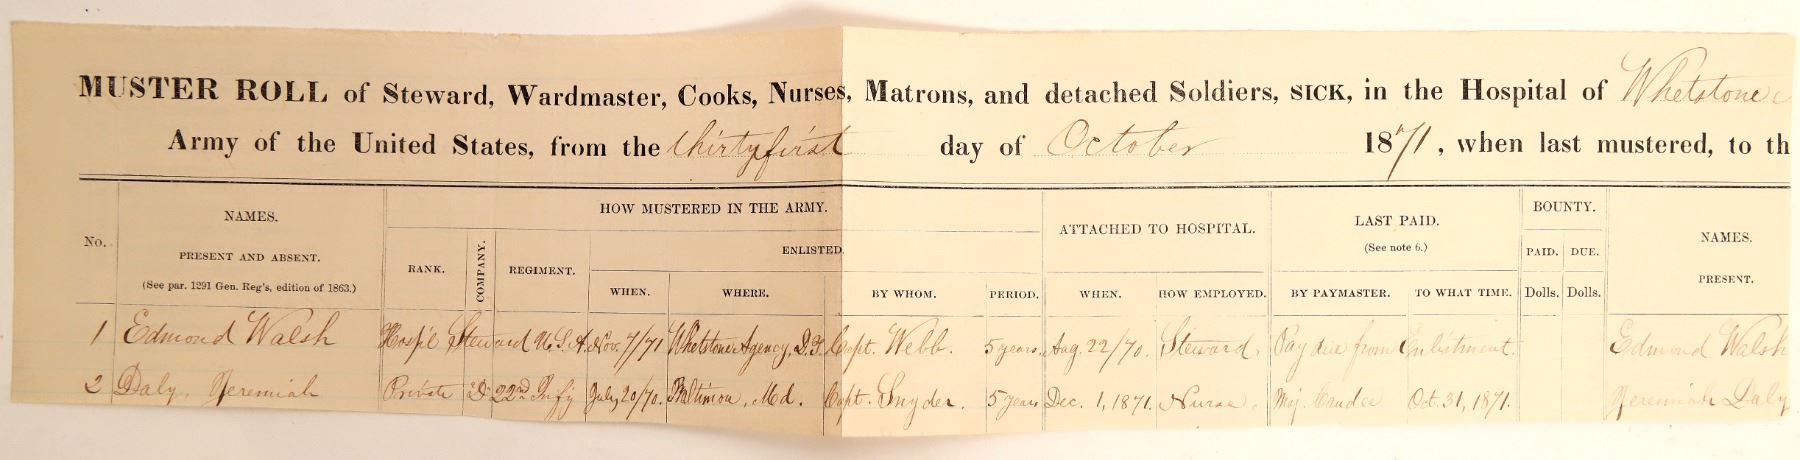 MUSTER ROLL of Steward, Wardmaster, Cooks, Nurses, Matrons, and detached Soldiers, SICK, in the Hospital of Whetstone
Army of the United States, from the thirty first day of October 1871, when last mustered, to th
No. NAMES. HOW MUSTERED IN THE ARMY. ATTACHED TO HOSPITAL. LAST PAID. BOUNTY. NAMES.
PRESENT AND ABSENT. RANK. COMPANY. REGIMENT. ENLISTED. (See note 6.) PAID. DUE. PRESENT.
(See par. 1291 Gen. Reg's, edition of 1863.) WHEN. WHERE. BY WHOM. PERIOD. WHEN. HOW EMPLOYED. BY PAYMASTER. TO WHAT TIME. Dolls. Dolls.
1 Edmond Walsh Hosp'l Steward U.S.A. Nov. 7/71 Whetstone Agency, D.T. Capt. Webb. 5 years. Aug. 22/70. Steward. Pay due from Enlistment. Edmond Walsh
2 Daly, Jeremiah Private "D" 22nd Infy July 20/70. Baltimore, Md. Capt. Snyder. 5 years Dec. 1, 1871. Nurse. Maj. Oct. 31, 1871. Jeremiah Daly